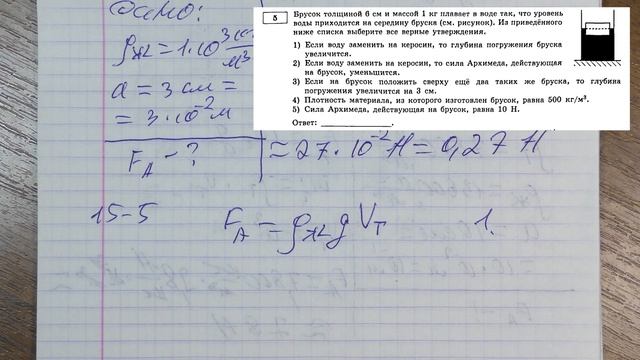 Дано:
ρж = 1·10³ кг/м³
a = 3 см =
= 3·10⁻² м
F_A - ?
= 27·10⁻² Н = 0,27 Н
15-5 F_A = ρж g V_T 1.
5
Брусок толщиной 6 см и массой 1 кг плавает в воде так, что уровень
воды приходится на середину бруска (см. рисунок). Из приведённого
ниже списка выберите все верные утверждения.
1) Если воду заменить на керосин, то глубина погружения бруска
увеличится.
2) Если воду заменить на керосин, то сила Архимеда, действующая
на брусок, уменьшится.
3) Если на брусок положить сверху ещё два таких же бруска, то глубина
погружения увеличится на 3 см.
4) Плотность материала, из которого изготовлен брусок, равна 500 кг/м³.
5) Сила Архимеда, действующая на брусок, равна 10 Н.
Ответ: ____________.